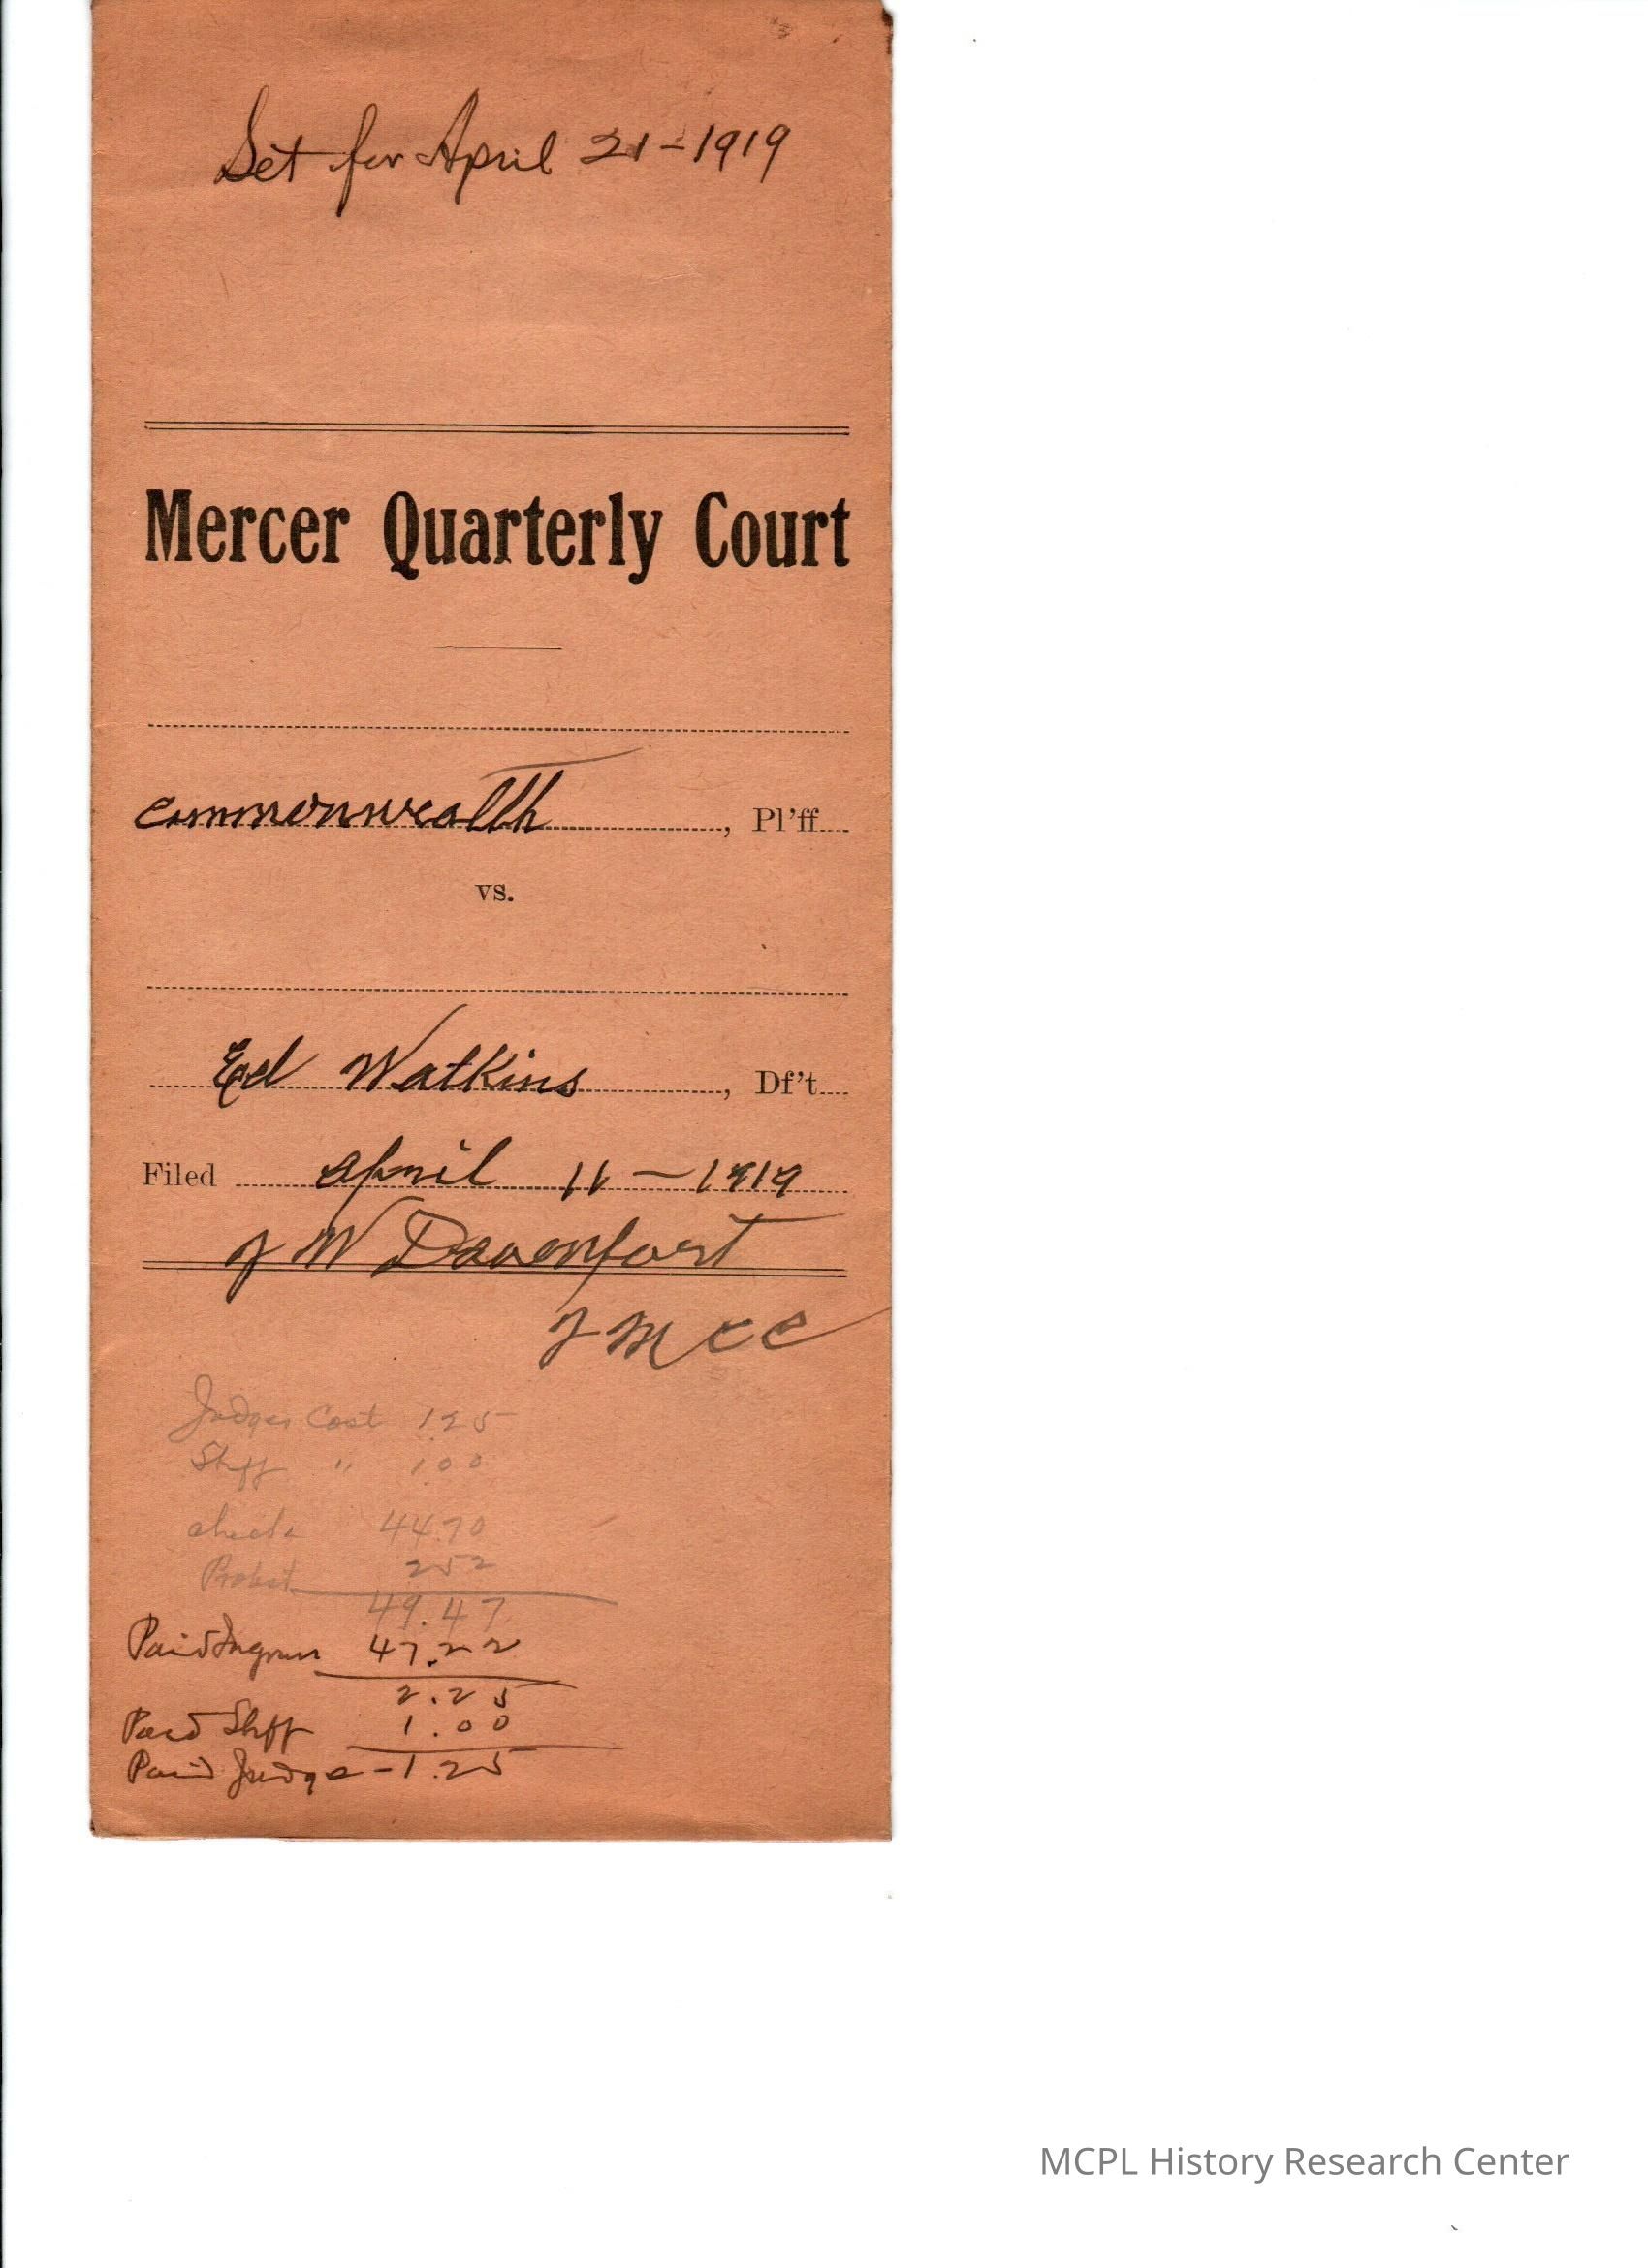 Set for April 21-1919
Mercer Quarterly Court
Commonwealth, Pl'ff
vs.
Ed Watkins, Df't
Filed April 11-1919
J W Davenport
J M C C
Judges Cost 1.25
Shff " 1.00
check 44.70
Probat 2 52
49.47
Paid Ingram 47.22
2.25
Paid Shff 1.00
Paid Judge - 1.25
MCPL History Research Center